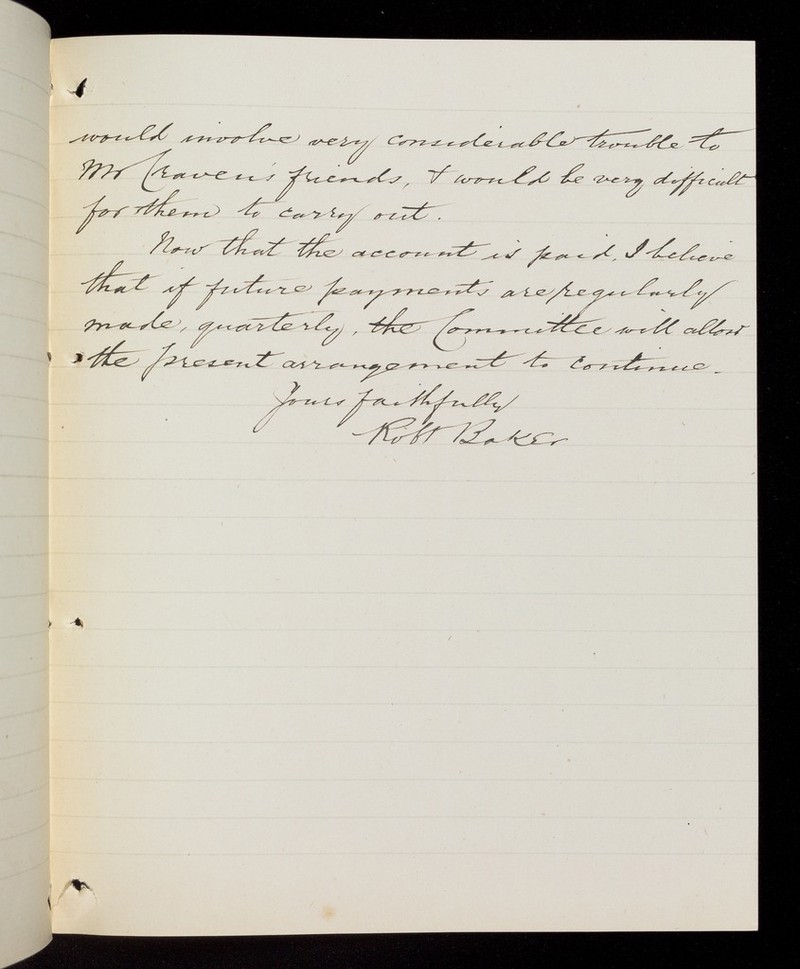 would involve very considerable trouble to
Mr Craven's friends, & would be very difficult
for them to carry out.
Now that the account is paid, I believe
that if future payments are regularly
made, quarterly, the Committee will allow
the present arrangement to continue.
Yours faithfully
Robt Baker